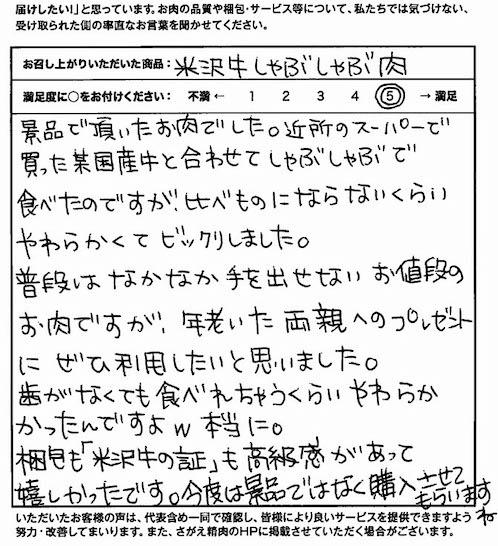 届けしたい!」と思っています。お肉の品質や梱包・サービス等について、私たちでは気づけない、
受け取られた側の率直なお言葉を聞かせてください。
お召し上がりいただいた商品: 米沢牛しゃぶしゃぶ肉
満足度に○をお付けください: 不満 ← 1 2 3 4 ⑤ → 満足
景品で頂いたお肉でした。近所のスーパーで
買った某国産牛と合わせてしゃぶしゃぶで
食べたのですが、比べものにならないくらい
やわらかくてビックリしました。
普段はなかなか手を出せないお値段の
お肉ですが、年老いた両親へのプレゼント
にぜひ利用したいと思いました。
歯がなくても食べれちゃうくらいやわらか
かったんですよw本当に。
梱包も「米沢牛の証」も高級感があって
嬉しかったです。今度は景品ではなく購入させて
もらいますね
いただいたお客様の声は、代表含め一同で確認し、皆様により良いサービスを提供できますよう
努力・改善してまいります。また、さがえ精肉のHPに掲載させていただく場合がございます。